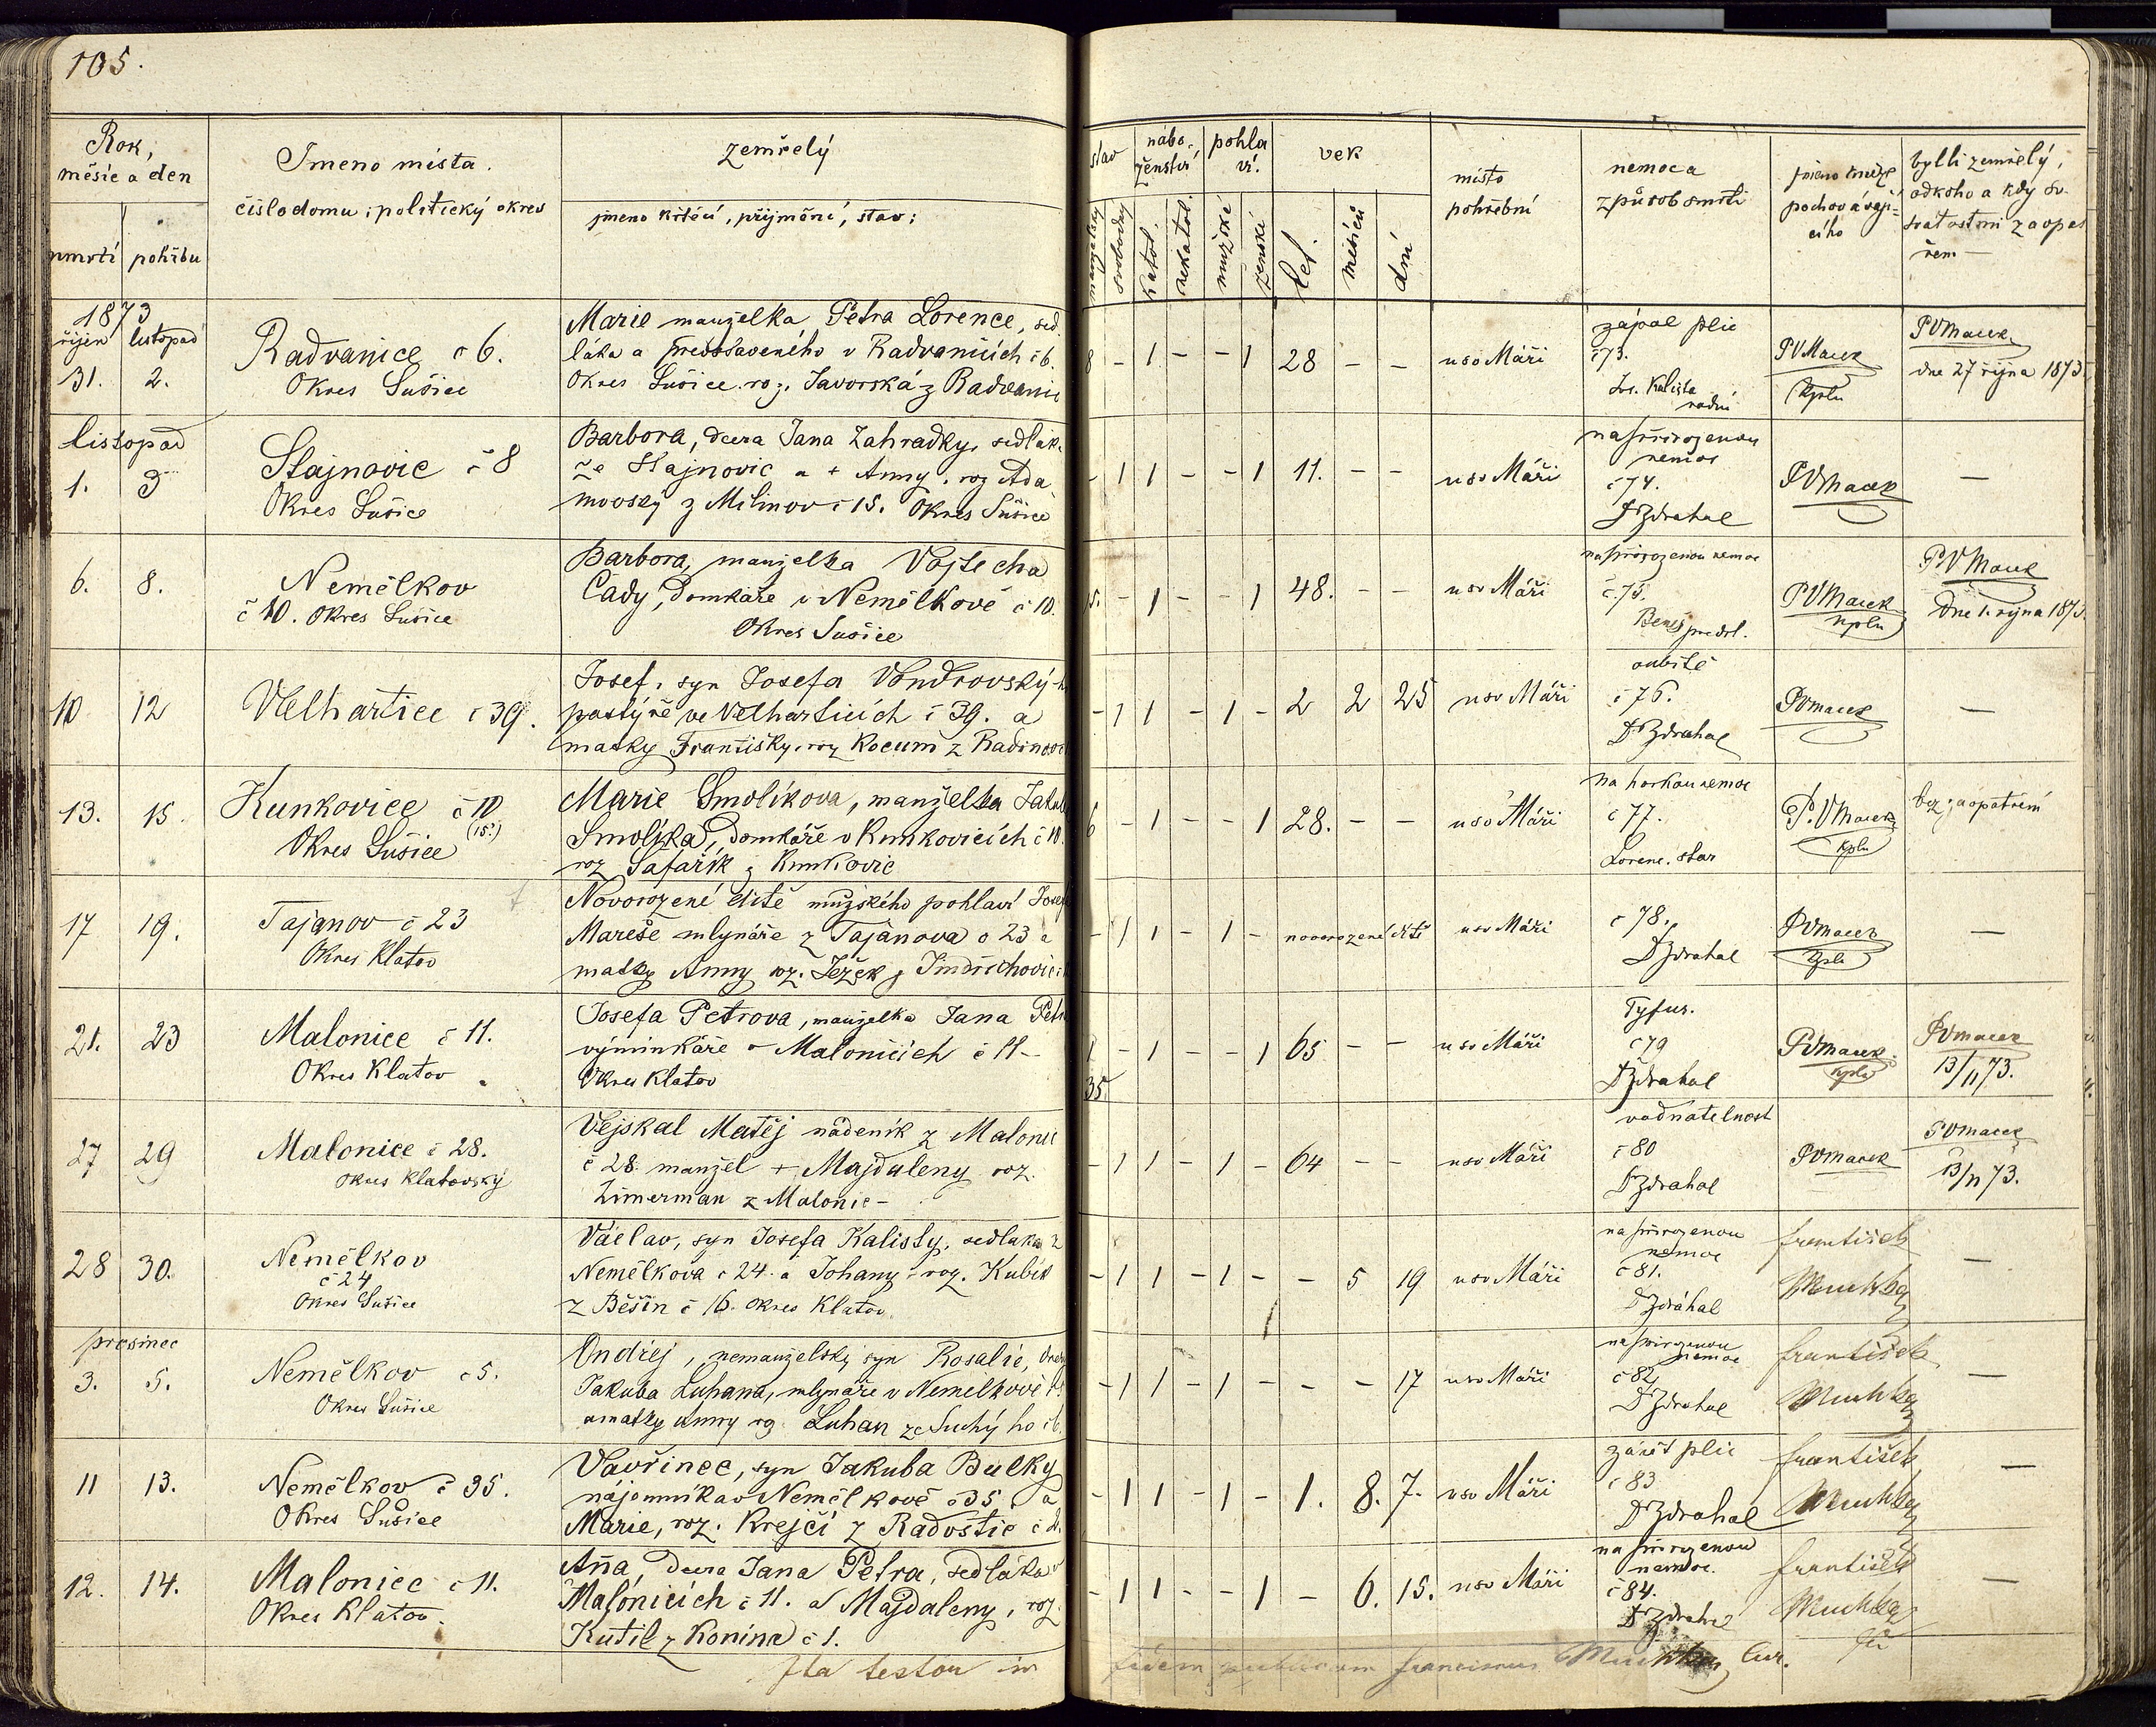 105.
Rok,
měsíc a den
úmrtí pohřbu
Jmeno místa.
číslo domu i politický okres
zemřelý
jmeno křěcí, příjmění, stav;
stav
manželský svobodný
nábo-
ženství
katol. nekatol.
pohla
ví.
mužské ženské
vek
let. měsíců dní
místo
pohřební
nemoc a
způsob smrti
jméno kněze
pochovávají=
cího
bylli zemřelý,
odkoho a kdy sv.
svatostmi zaopa
řem
1873
říjen listopad
31. 2.
Radvanice č 6.
Okres Sušice
Marie manželka Petra Lorence, sed.
láka a představeného v Radvanicích č 6.
Okres Sušice roz. Javorská z Radvanic
8 - 1 - - 1 28 - - u sv Máří
zápal plic
č 73.
Kalista
radní
PVMacek
Kpln
PVMacek
dne 27 října 1873
listopad
1. 3
Stajnovic č 8
Okres Sušice
Barbora, dcera Jana Zahradky, sedlák.
ze Stajnovic a + Anny, roz Ada
movsky z Milinov č 15. Okres Sušice
- 1 1 - - 1 11. - - u sv Máří
na přirozenou
nemoc
č 74.
Dr Zdrahal
PVMacek
—
6. 8.
Nemělkov
č 10. Okres Sušice
Barbora, manželka Vojtěcha
Cády, domkáře v Nemělkově č 10.
Okres Sušice
15. - 1 - - 1 48. - - u sv Máří
na přirozenou nemoc
č 75.
Beneš predst.
PVMacek
kpln
PVMacek
dne 1. října 1873.
10 12
Velhartice č 39.
Josef, syn Josefa Vondrovský-
pastýře ve Velharticích č 39. a
matky Františky, roz Kocum z Radinov
- 1 1 - 1 - 2 2 25 u sv Máří
oubitě
č 76.
Dr Zdrahal
PVMacek
—
13. 15.
Kunkovice č 10
(15.)
Okres Sušice
Marie Smolíkova, manželka Jakub
Smolíka, domkáře v Kunkovicích č 10.
roz Šafařík z Kunkovic
6 - 1 - - 1 28. - - u sv Máří
na horkou nemoc
č 77.
Lorenc. star
P. VMacek
kpln
bez zaopatření
17 19.
Tajanov č 23
Okres Klatov
Novorozené dítě mužského pohlaví Josef
Mareše mlynáře z Tajanova č 23 a
matky Anny roz. Ježek z Jindřichovic
- 1 1 - 1 - novorozené dítě u sv Máří
č 78.
Dr Zdrahal
PVMacek
kpln
—
21. 23
Malonice č 11.
Okres Klatov
Josefa Petrova, manželka Jana Petr
výminkáře v Malonicích č 11-
Okres Klatov
1 - 1 - - 1 65 - - u sv Máří
35.
Tyfus.
č 79
Dr Zdrahal
PVMacek
kpln
PVMacek
13/11 73.
27 29
Malonice č 28.
okres Klatovský
Vejskal Matěj nádeník z Malonic
č 28. manžel + Majdaleny roz.
Zimerman z Malonic-
- 1 1 - 1 - 64 - - u sv Máří
vodnatelnost
č 80
Dr Zdrahal
PVMacek
PVMacek
13/11 73.
28 30.
Nemělkov
č 24
Okres Sušice
Václav, syn Josefa Kalisty, sedláka z
Nemělkova č 24. a Johany roz. Kubík
z Běšin č 16. okres Klatov
- 1 1 - 1 - - 5 19 u sv Máří
na přirozenou
nemoc
č 81.
Dr Zdráhal
František
Muchka
—
prosinec
3. 5.
Nemělkov č 5.
Okres Sušice
Ondřej, nemanželský syn Rosalie, dcery
Jakuba Luhana, mlynáře v Nemělkově č 5
a matky Anny roz Luhan ze Suchý ho č 6.
- 1 1 - 1 - - - 17 u sv Máří
na přirozenou
nemoc
č 82
Dr Zdrahal
František
Muchka
—
11 13.
Nemělkov č 35.
Okres Sušice
Vavřinec, syn Jakuba Bulky
nájemníka v Nemělkově č 35, a
Marie, roz. Krejčí z Radostic č 2.
- 1 1 - 1 - 1. 8. 7. u sv Máří
zánět plic
č 83
Dr Zdrahal
František
Muchka
—
12. 14.
Malonice č 11.
Okres Klatov.
Aña, dcera Jana Petra, sedláka v
Malonicích č 11. a Majdaleny, roz.
Kutil z Konína č 1.
- 1 1 - - 1 - 6. 15. u sv Máří
na přirozenou
nemoc.
č 84.
Dr Zdrahal
František
Muchka
—
Ita testor in fidem publicam Franciscus Muchka, Cur.